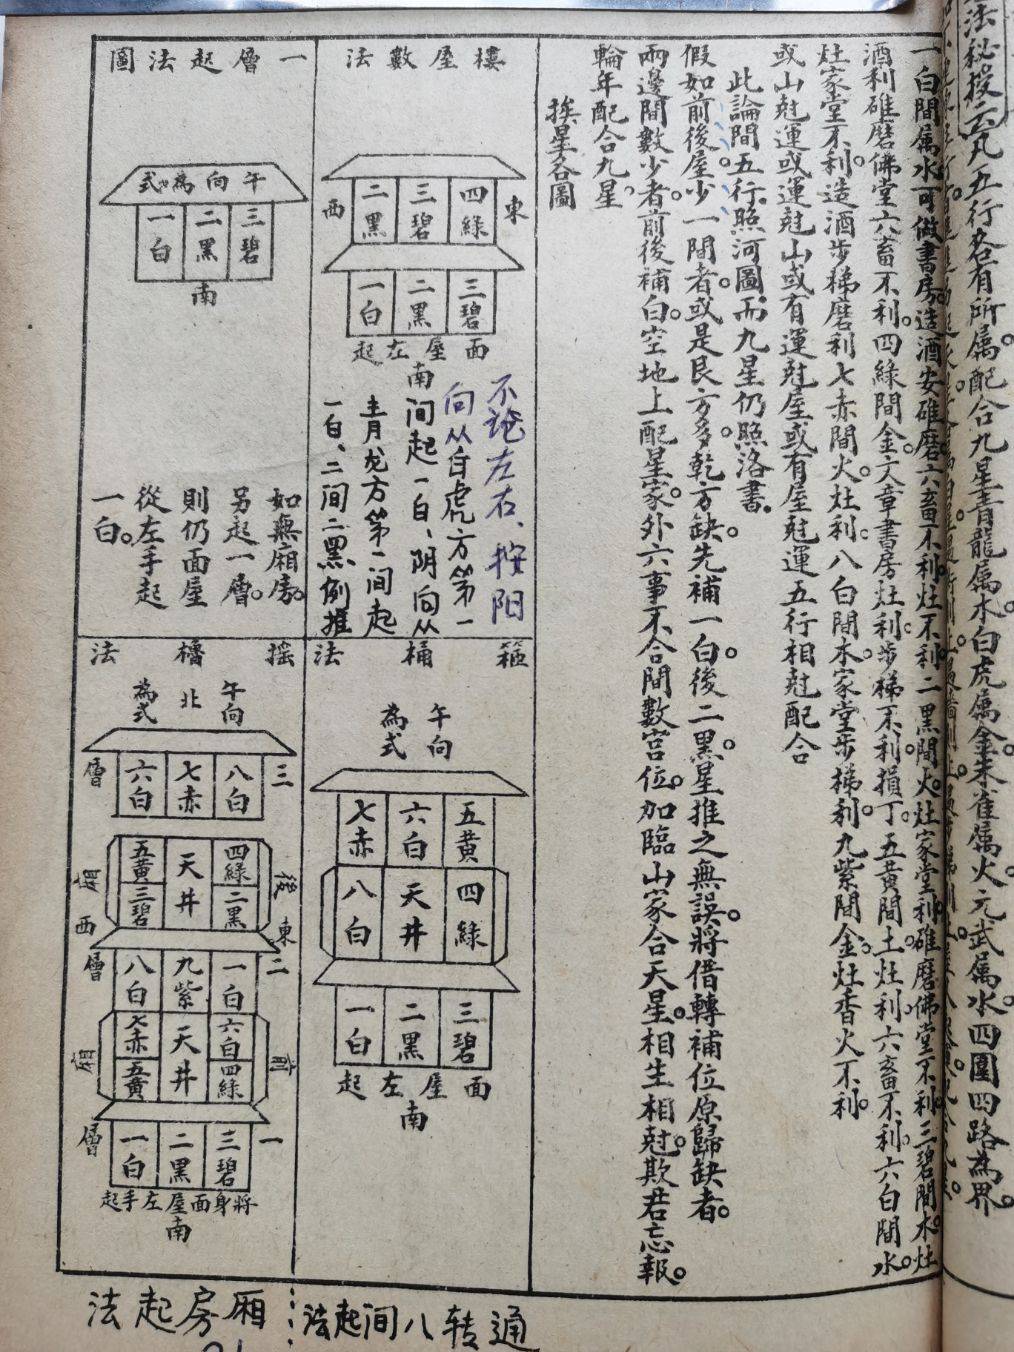 法秘授云凡五行各有所属配合九星青龍属水白虎属金朱雀属火元武属水四圍四路為界
一白間属水可做書房造酒安碓磨六畜不利灶不利二黑間火灶家堂利碓磨佛堂不利三碧間木灶
酒利碓磨佛堂六畜不利四綠間金文章書房灶利步梯不利損丁五黃間土灶利六畜不利六白間水
灶家堂不利造酒步梯磨利七赤間火灶利八白間木家堂步梯利九紫間金灶香火不利
或山尅運或運尅山或有運尅屋或有屋尅運五行相尅配合
此論間五行照河圖而九星仍照洛書
假如前後屋少一間者或是艮方多乾方缺先補一白後二黑星推之無誤將借轉補位原歸缺者
兩邊間數少者前後補白空地上配星家外六事不合間數宮位加臨山家合天星相生相尅欺君忘報
輪年配合九星
挨星各圖
樓屋數法
東
四綠
三碧
二黑
西
三碧
二黑
一白
面屋左起
南
不论左右、按阳
向从白虎方第一
间起一白、阴向从
青龙方第一间起
一白、二间二黑例推
一層起法圖
午向為式
三碧
二黑
一白
南
如無廂房
另起一層
則仍面屋
從左手起
一白
箍桶法
午向
為式
五黃
六白
七赤
四綠
天井
八白
三碧
二黑
一白
面屋左起
南
搖櫓法
午向
北
為式
三
八白
七赤
六白
層
後
四綠
二黑
天井
五黃
三碧
廂
東
西
二
一白
九紫
八白
層
前
六白
四綠
天井
七赤
五黃
廂
一
三碧
二黑
一白
層
將身面屋左手起
南
通转八间起法
厢房起法